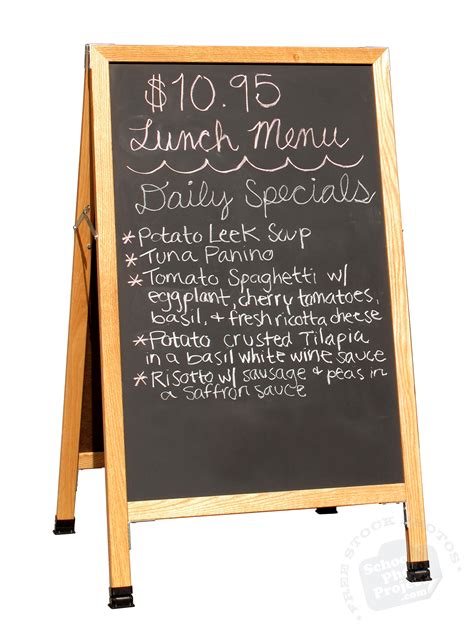 $10.95
Lunch Menu
Daily Specials
* Potato Leek Soup
* Tuna Panino
* Tomato Spaghetti w/
eggplant, cherry tomatoes,
basil, & fresh ricotta cheese
* Potato crusted Tilapia
in a basil white wine sauce
* Risotto w/ sausage & peas in
a saffron sauce
FREE STOCK PHOTOS
School
Photo
Project.com